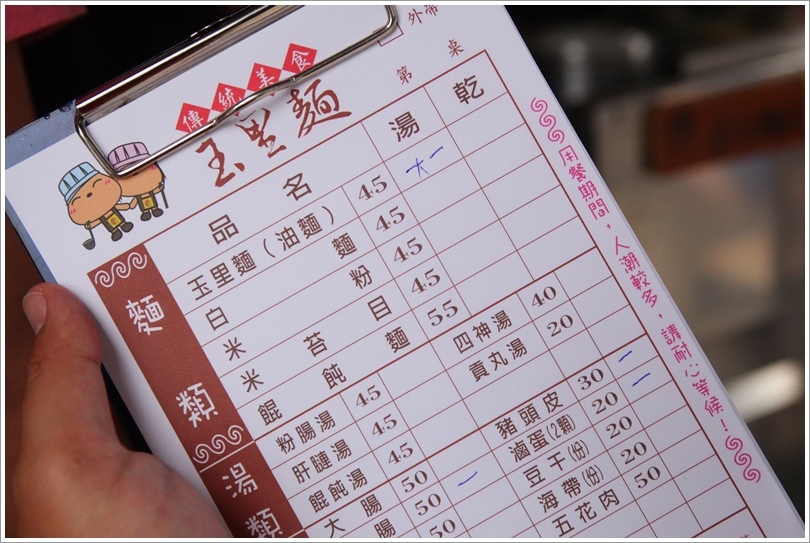 外帶
第 桌
傳統美食
玉里麵
品名 湯 乾
麵類
玉里麵(油麵) 45 大一
白麵 45
米粉 45
米苔目 45
餛飩麵 55
湯類
粉腸湯 45
肝嗹湯 45
餛飩湯 45
大腸 50 一
腸 50
50
四神湯 40
貢丸湯 20
豬頭皮 30 一
滷蛋(2顆) 20 一
豆干(份) 20
海帶(份) 20
五花肉 50
用餐期間,人潮較多,請耐心等候!